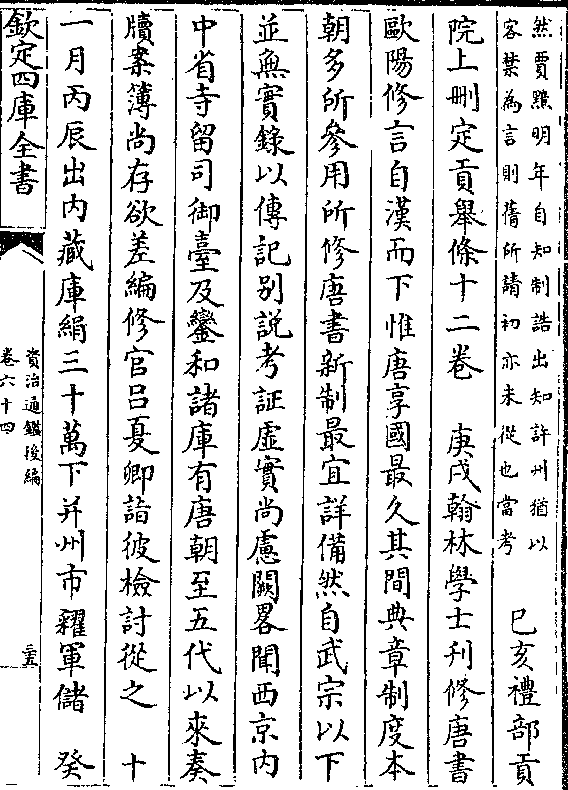 然賈黯明年自知制誥出知許州猶以
客禁為言則舊所請初亦未從也當考
己亥禮部貢
院上刪定貢舉條十二卷　庚戌翰林學士刋修唐書
歐陽修言自漢而下惟唐享國最久其間典章制度本
朝多所參用所修唐書新制最宜詳備然自武宗以下
並無實錄以傳記別說考証虛實尚慮闕畧聞西京内
中省寺留司御臺及鑾和諸庫有唐朝至五代以來奏
牘案簿尚存欲差編修官吕夏卿詣彼檢討從之　十
一月丙辰出内藏庫絹三十萬下并州市糴軍儲　癸
欽定四庫全書
資治通鑑後編
卷六十四
三五